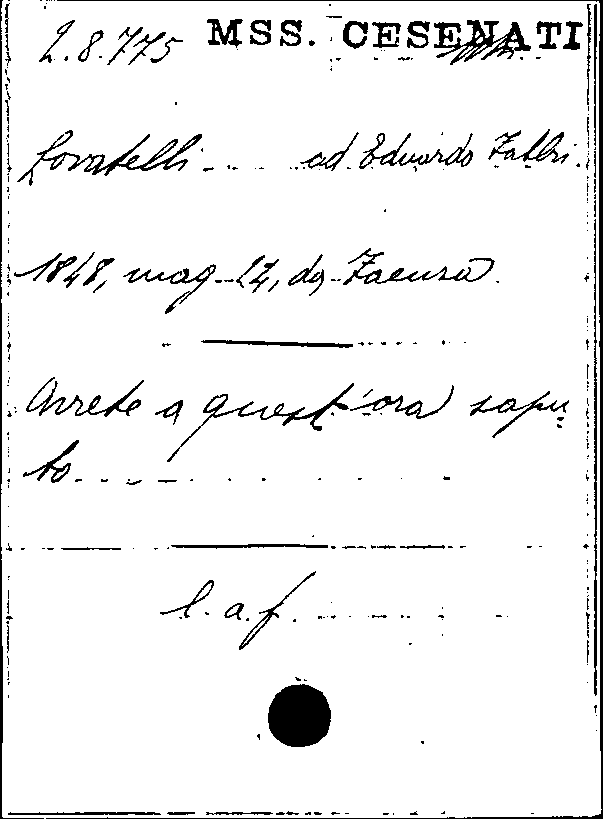 2.8.775 MSS. CESENATI
Lovatelli ad Eduardo Fabbri.
1848, mag. 17, da Faenza
Avrete a quest'ora sapu=
to
l. a. f.